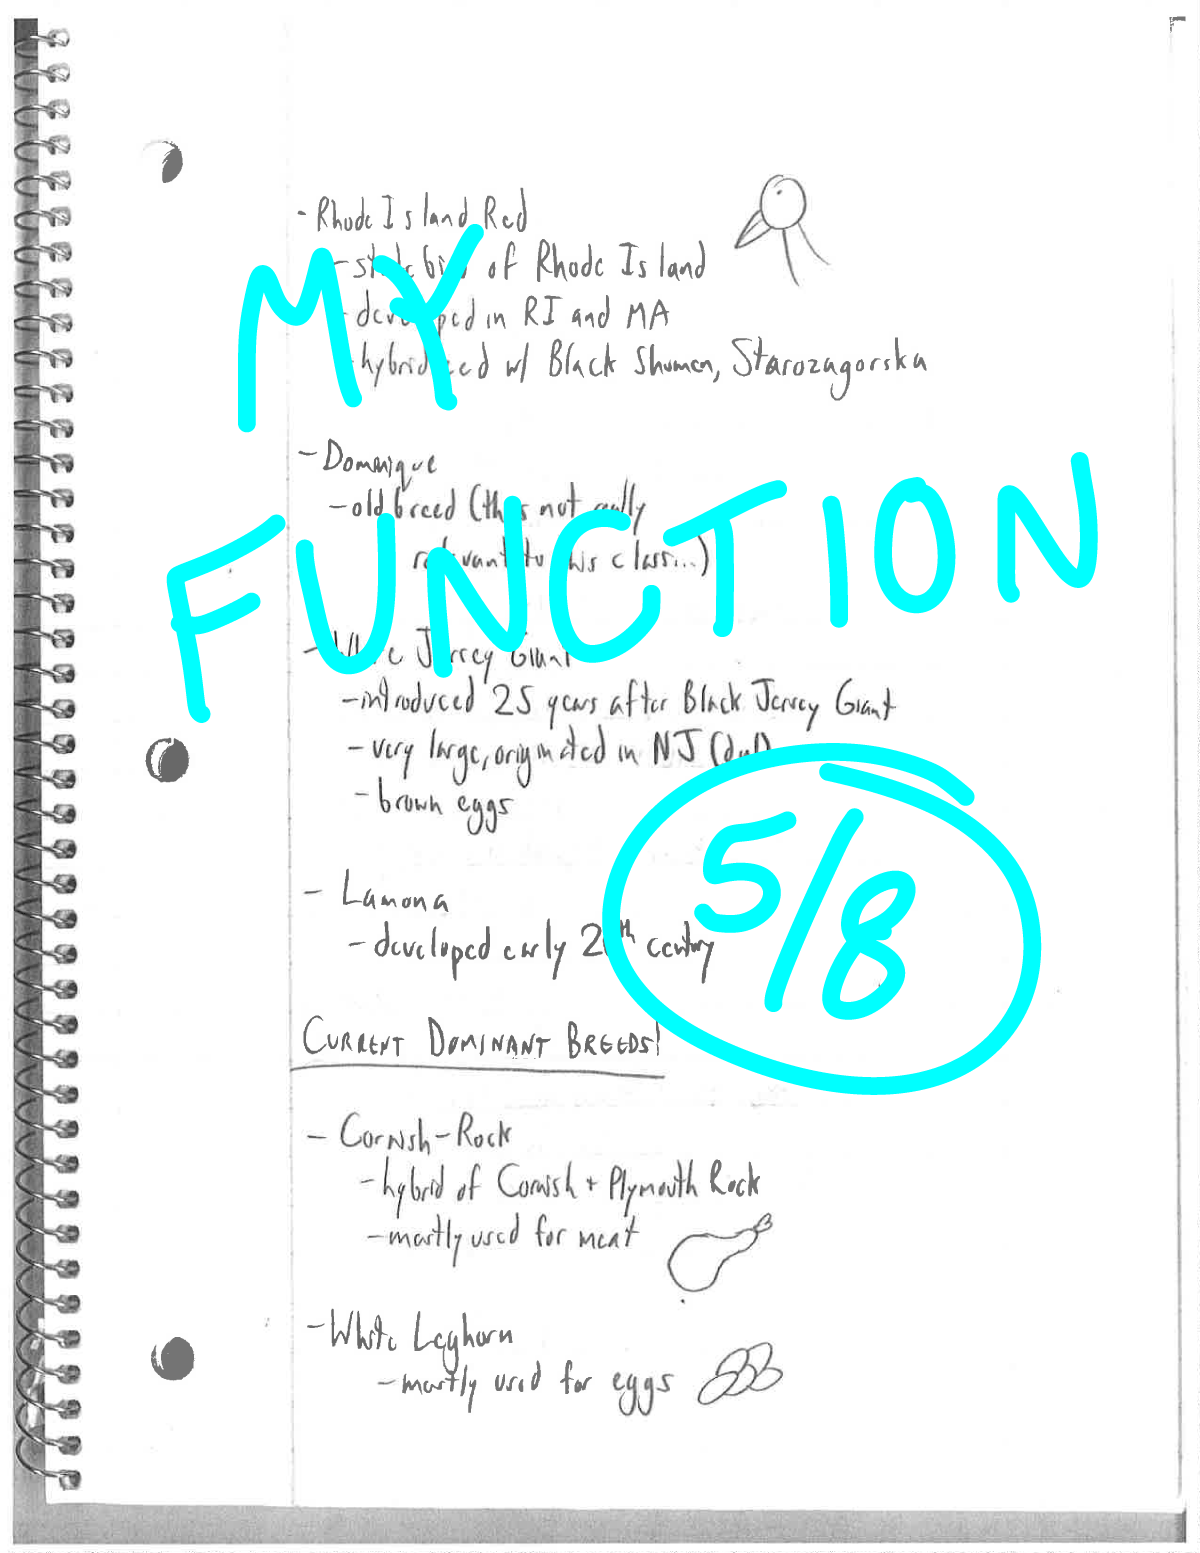 - Rhode Island Red
- state bird of Rhode Island
- developed in RI and MA
- hybridized w/ Black Shumen, Starozagorska
MY
- Dominique
- old breed (this not really
relevant to this class...)
FUNCTION
- White Jersey Giant
- introduced 25 years after Black Jersey Giant
- very large, originated in NJ (duh)
- brown eggs
5/8
- Lamona
- developed early 20th century
CURRENT DOMINANT BREEDS!
- Cornish-Rock
- hybrid of Cornish + Plymouth Rock
- mostly used for meat
- White Leghorn
- mostly used for eggs